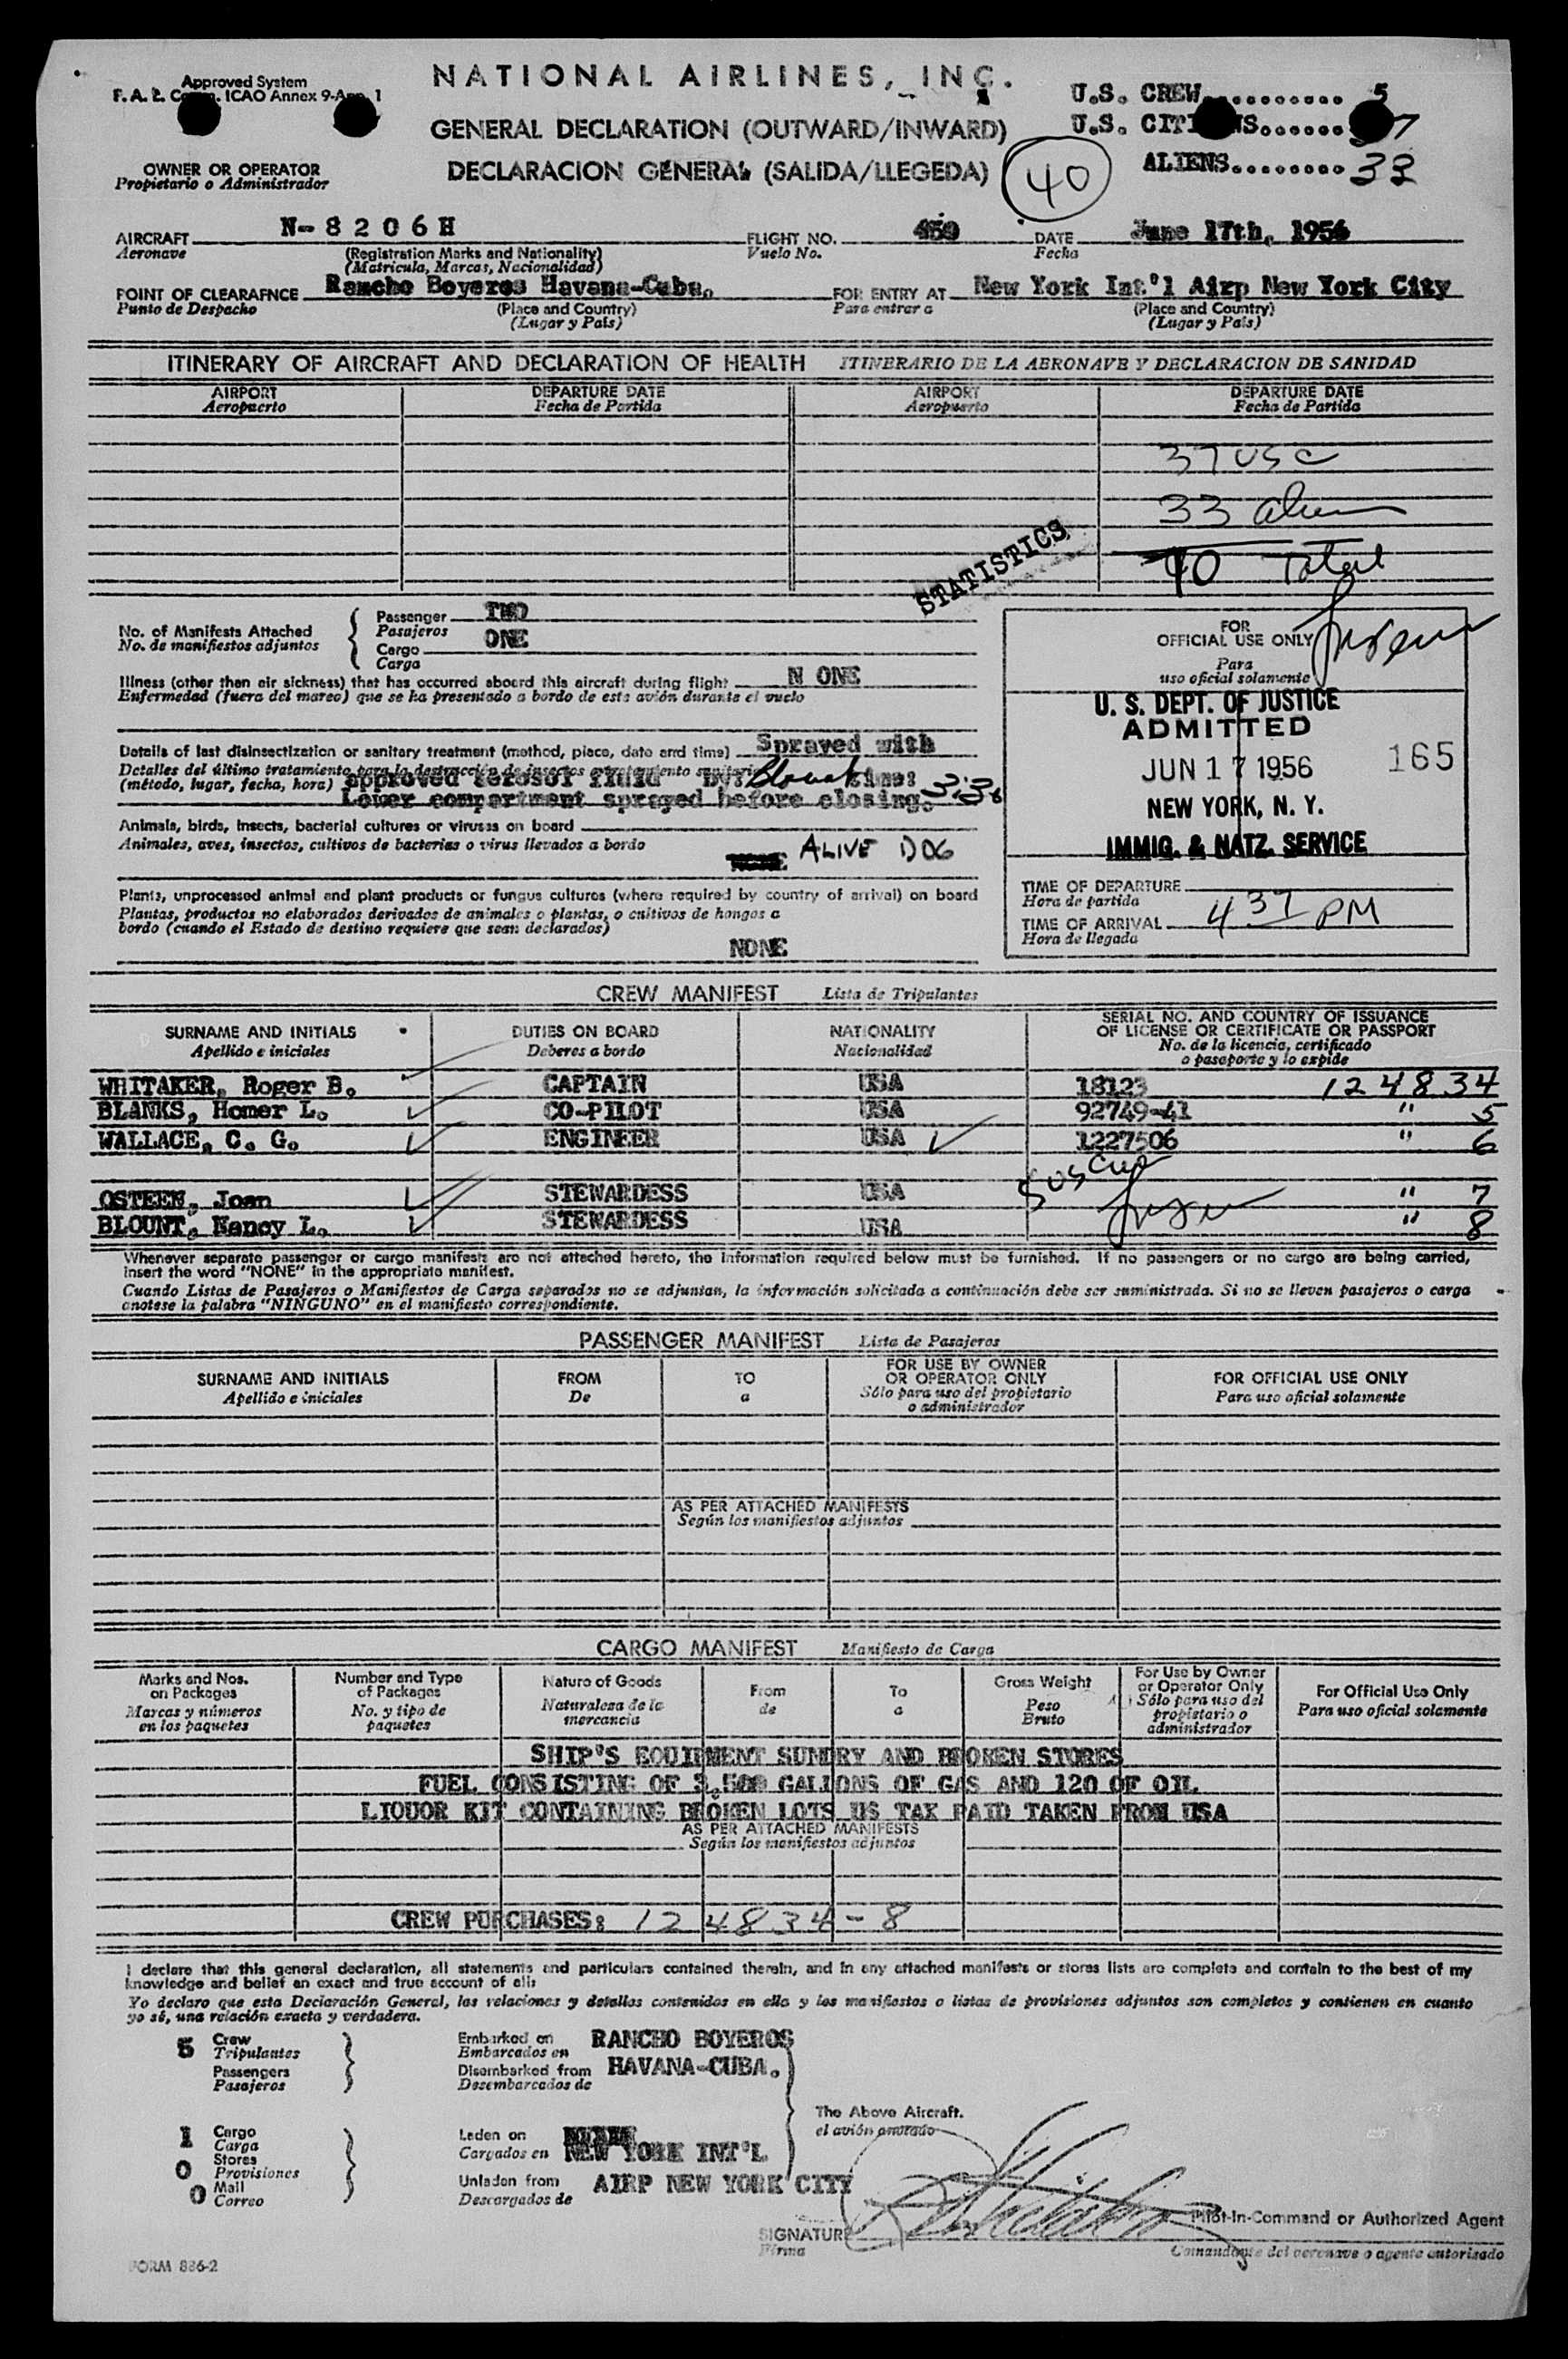 Approved System
F. A. L. Comm. ICAO Annex 9-App. 1
NATIONAL AIRLINES, INC.
GENERAL DECLARATION (OUTWARD/INWARD)
DECLARACION GENERAL (SALIDA/LLEGEDA)
40
U.S. CREW........... 5
U.S. CITIZENS...... 7
ALIENS......... 33
OWNER OR OPERATOR
Propietario o Administrador
AIRCRAFT N-8206H FLIGHT NO. 450 DATE June 17th, 1956
Aeronave (Registration Marks and Nationality) Vuelo No. Fecha
(Matricula, Marcas, Nacionalidad)
POINT OF CLEARAFNCE Rancho Boyeros Havana-Cuba. FOR ENTRY AT New York Int'l Airp New York City
Punto de Despacho (Place and Country) Para entrar a (Place and Country)
(Lugar y País) (Lugar y País)
ITINERARY OF AIRCRAFT AND DECLARATION OF HEALTH ITINERARIO DE LA AERONAVE Y DECLARACION DE SANIDAD
AIRPORT DEPARTURE DATE AIRPORT DEPARTURE DATE
Aeropuerto Fecha de Partida Aeropuerto Fecha de Partida
37 USC
33 alien
40 Total
STATISTICS
No. of Manifests Attached
No. de manifiestos adjuntos
Passenger TWO
Pasajeros
Cargo ONE
Carga
Illness (other than air sickness) that has occurred aboard this aircraft during flight N ONE
Enfermedad (fuera del mareo) que se ha presentado a bordo de este avión durante el vuelo
Details of last disinsectization or sanitary treatment (method, place, date and time) Sprayed with
Detalles del último tratamiento para la destrucción de insectos o tratamiento sanitario
(método, lugar, fecha, hora) approved aerosol fluid By: Blount time: 3:30
Lower compartment sprayed before closing.
Animals, birds, insects, bacterial cultures or viruses on board
Animales, aves, insectos, cultivos de bacterias o virus llevados a bordo
ALIVE DOG
Plants, unprocessed animal and plant products or fungus cultures (where required by country of arrival) on board
Plantas, productos no elaborados derivados de animales o plantas, o cultivos de hongos a
bordo (cuando el Estado de destino requiere que sean declarados)
NONE
FOR
OFFICIAL USE ONLY
Para
uso oficial solamente
U. S. DEPT. OF JUSTICE
ADMITTED
JUN 17 1956 165
NEW YORK, N. Y.
IMMIG. & NATZ. SERVICE
TIME OF DEPARTURE
Hora de partida
TIME OF ARRIVAL 4 37 PM
Hora de llegada
CREW MANIFEST Lista de Tripulantes
SURNAME AND INITIALS DUTIES ON BOARD NATIONALITY SERIAL NO. AND COUNTRY OF ISSUANCE
OF LICENSE OR CERTIFICATE OR PASSPORT
Apellido e iniciales Deberes a bordo Nacionalidad No. de la licencia, certificado
o pasaporte y lo expide
WHITAKER, Roger B. CAPTAIN USA 18123 124834
BLANKS, Homer L. CO-PILOT USA 92749-41 " 5
WALLACE, C. G. ENGINEER USA 1227506 " 6
OSTEEN, Joan STEWARDESS USA " 7
BLOUNT, Nancy L. STEWARDESS USA " 8
Whenever separate passenger or cargo manifests are not attached hereto, the information required below must be furnished. If no passengers or no cargo are being carried,
insert the word "NONE" in the appropriate manifest.
Cuando Listas de Pasajeros o Manifiestos de Carga separados no se adjuntan, la información solicitada a continuación debe ser suministrada. Si no se lleven pasajeros o carga
anotese la palabra "NINGUNO" en el manifiesto correspondiente.
PASSENGER MANIFEST Lista de Pasajeros
SURNAME AND INITIALS FROM TO FOR USE BY OWNER
OR OPERATOR ONLY FOR OFFICIAL USE ONLY
Apellido e iniciales De a Sólo para uso del propietario
o administrador Para uso oficial solamente
AS PER ATTACHED MANIFESTS
Según los manifiestos adjuntos
CARGO MANIFEST Manifiesto de Carga
Marks and Nos.
on Packages
Marcas y números
en los paquetes
Number and Type
of Packages
No. y tipo de
paquetes
Nature of Goods
Naturalesa de la
mercancia
From
de
To
a
Gross Weight
Peso
Bruto
For Use by Owner
or Operator Only
Sólo para uso del
propietario o
administrador
For Official Use Only
Para uso oficial solamente
SHIP'S EQUIPMENT SUNDRY AND BROKEN STORES
FUEL CONSISTING OF 3,500 GALLONS OF GAS AND 120 OF OIL
LIQUOR KIT CONTAINING BROKEN LOTS US TAX PAID TAKEN FROM USA
AS PER ATTACHED MANIFESTS
Según los manifiestos adjuntos
CREW PURCHASES: 124834-8
I declare that this general declaration, all statements and particulars contained therein, and in any attached manifests or stores lists are complete and contain to the best of my
knowledge and belief an exact and true account of all:
Yo declaro que esta Declaración General, las relaciones y detalles contenidos en ella y los manifiestos o listas de provisiones adjuntos son completos y contienen en cuanto
yo sé, una relación exacta y verdadera.
5 Crew
Tripulantes
Passengers
Pasajeros
Embarked on RANCHO BOYEROS
Embarcados en
Disembarked from HAVANA-CUBA.
Desembarcados de
The Above Aircraft.
el avión anotado
1 Cargo
Carga
0 Stores
Provisiones
0 Mail
Correo
Laden on
Cargados en NEW YORK INT'L
Unladen from AIRP NEW YORK CITY
Descargados de
SIGNATURE
Firma
Pilot-in-Command or Authorized Agent
Comandante del aeronave o agente autorizado
FORM 886-2